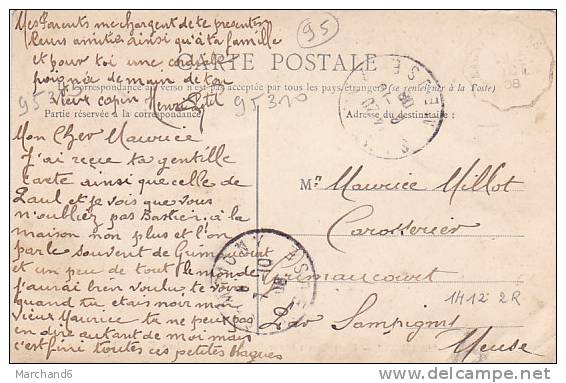 Mes Parents me chargent de te presenter
leurs amities ainsi qu'à ta famille
et pour toi une cordiale
poignée de main de ton
vieux copin Henri
95
95310
95310
CARTE POSTALE
La correspondance au verso n'est pas acceptée par tous les pays étrangers (se renseigner à la Poste)
Partie réservée à la correspondance
Adresse du destinataire :
Mon Cher Maurice
J'ai reçue ta gentille
carte ainsi que celle de
Paul et je vois que vous
n'oubliez pas Bastier, à la
maison non plus et l'on
parle souvent de Grimaucourt
et un peu de tout le monde
j'aurai bien voulu te voir
quand tu étais noir mon
vieux Maurice tu ne peux pas
en dire autant de moi mais
c'est fini toutes ces petites blagues
Mr Maurice Millot
Carossier
Grimaucourt
Par Sampigny
Meuse
1412 2R
Marchand6
http://www.delcampe.net